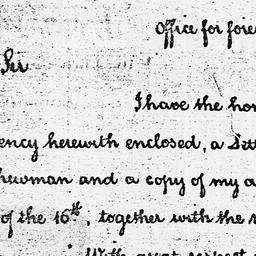 Office for fore
Sir
I have the hon
ency herewith enclosed, a Lett
hewman and a copy of my a
of the 16th, together with the
With great respect